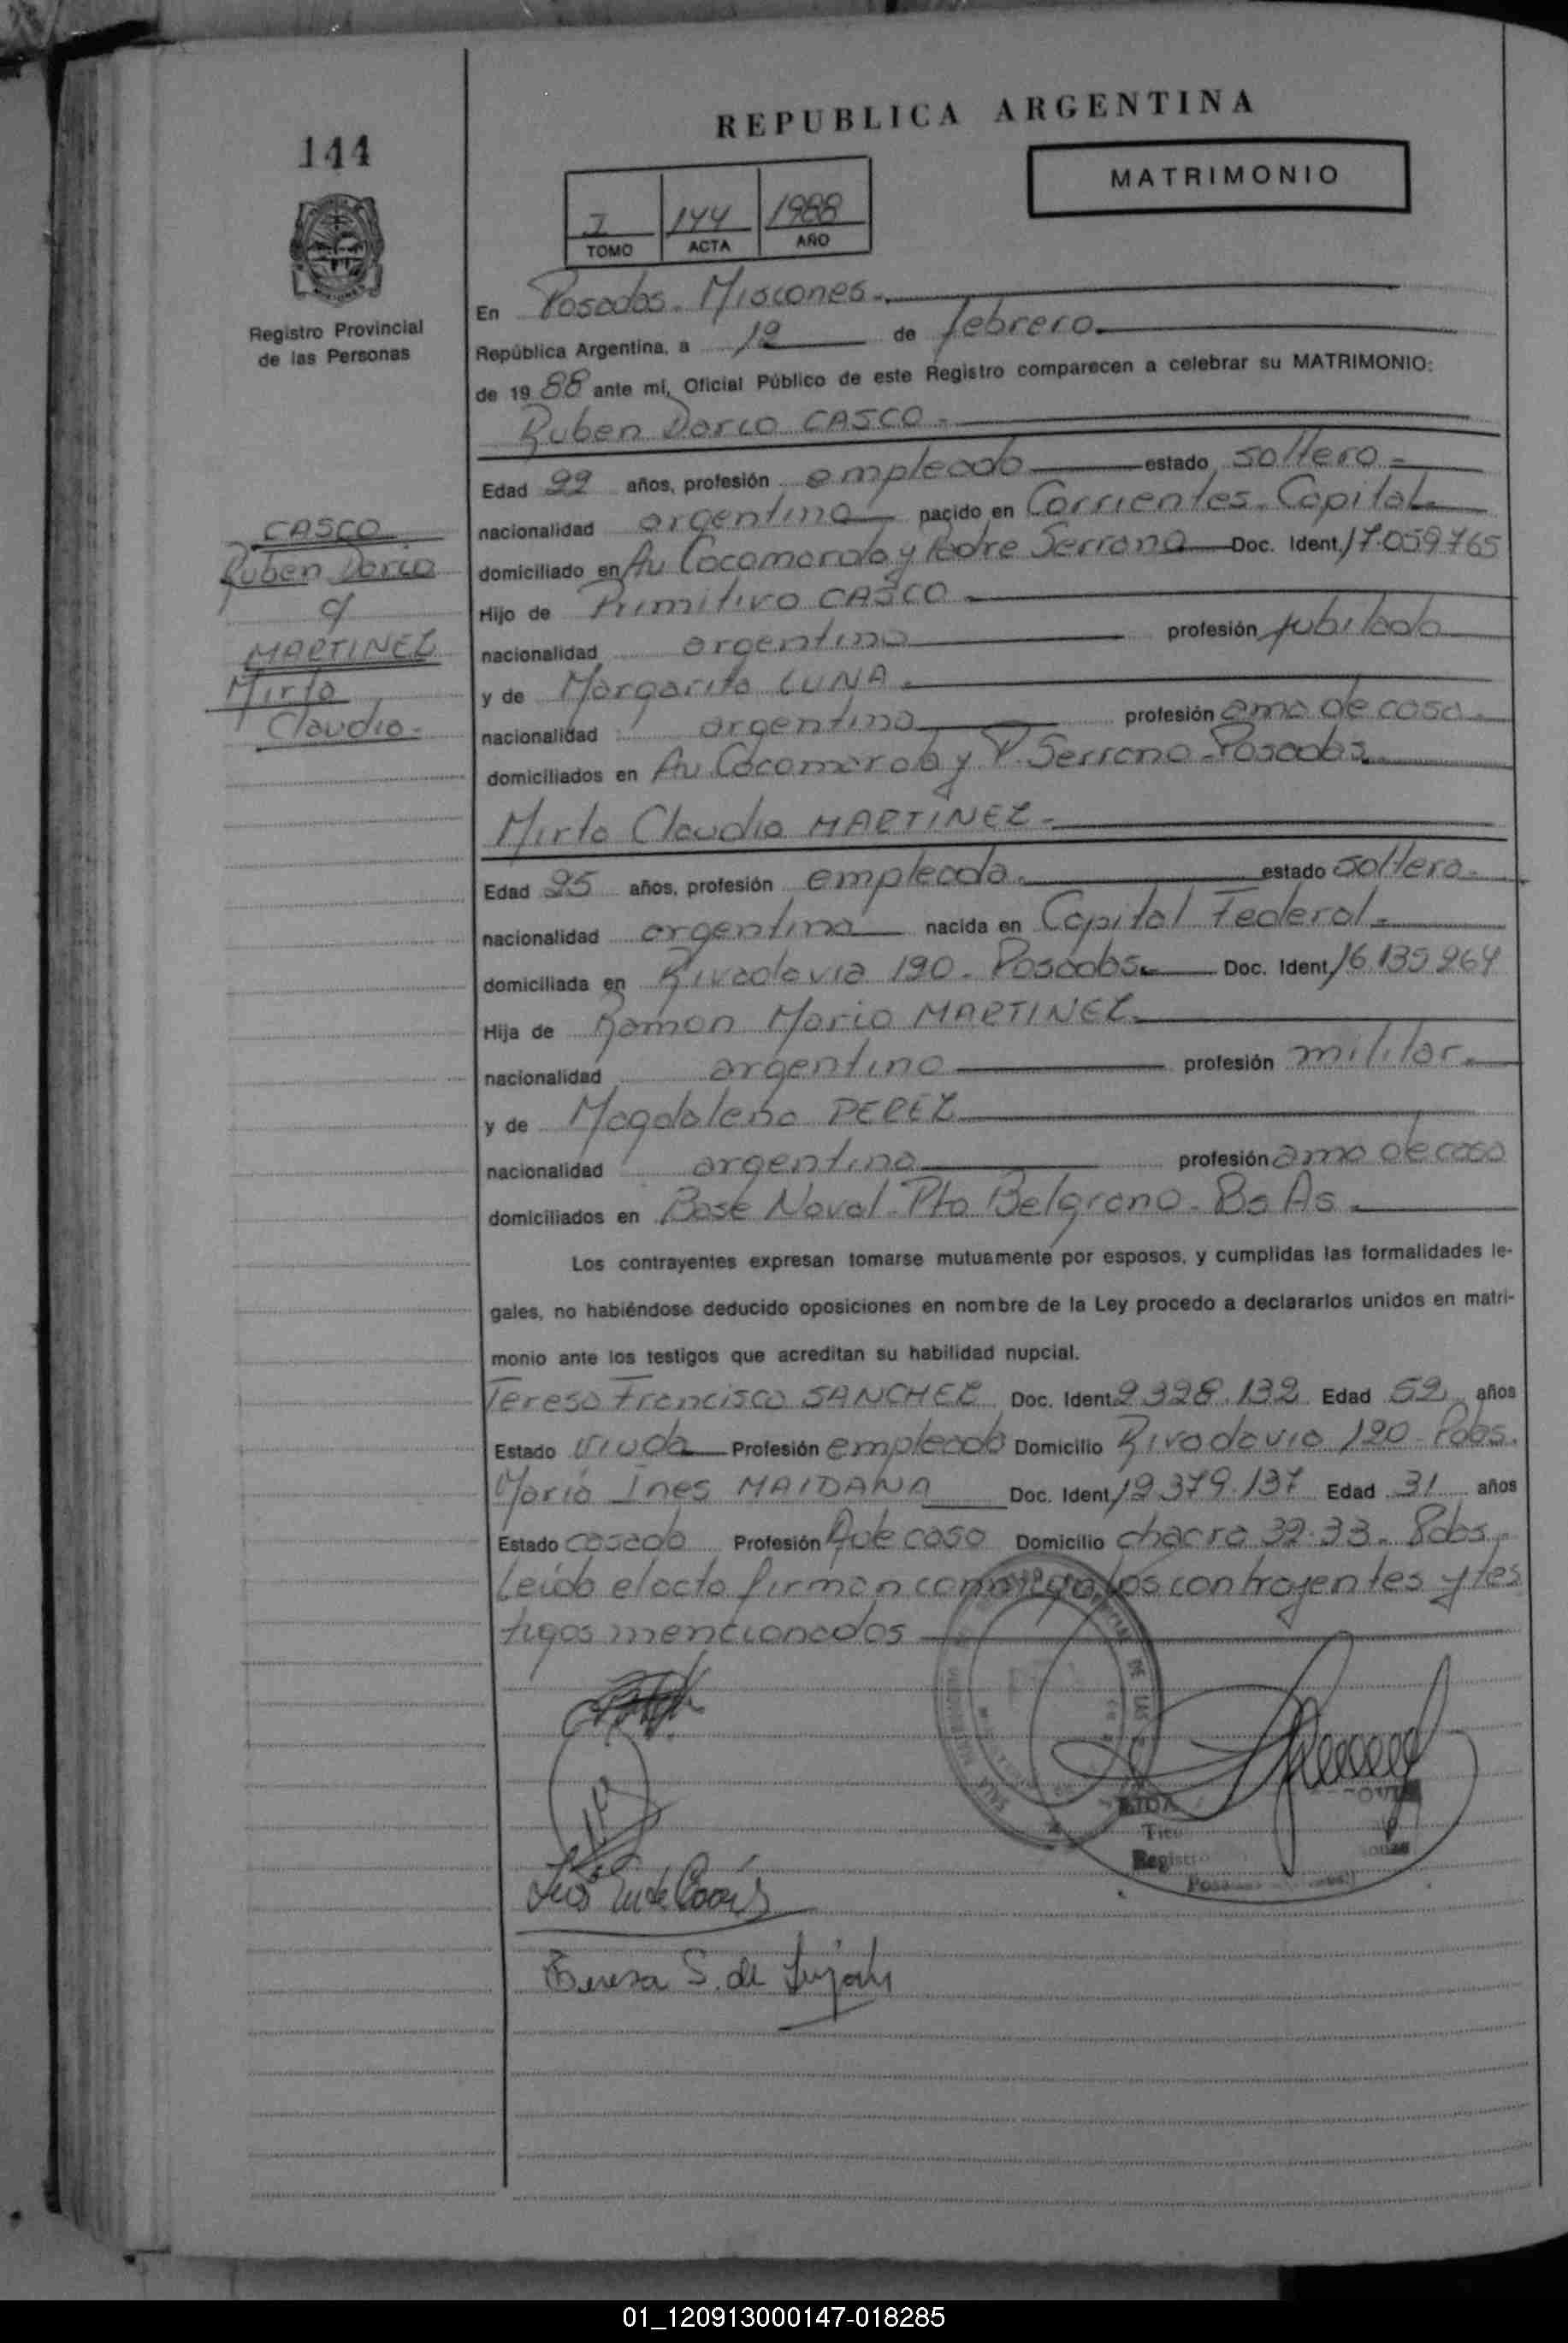 REPUBLICA ARGENTINA
144
MATRIMONIO
I 144 1988
TOMO ACTA AÑO
Registro Provincial
de las Personas
En Posadas. Misiones.
República Argentina, a 12 de febrero.
de 19 88 ante mí, Oficial Público de este Registro comparecen a celebrar su MATRIMONIO:
Ruben Dario CASCO.
Edad 22 años, profesión empleado estado soltero.
nacionalidad argentina nacido en Corrientes. Capital.
domiciliado en Av Cocomarola y Padre Serrano Doc. Ident. 17.059765
Hijo de Primitivo CASCO.
nacionalidad argentina profesión jubilado
y de Margarita LUNA.
nacionalidad argentina profesión ama de casa.
domiciliados en Av. Cocomarola y P. Serrano. Posadas.
CASCO
Ruben Dario
c/
MARTINEZ
Mirta
Claudia.
Mirta Claudia MARTINEZ.
Edad 25 años, profesión empleada. estado soltera.
nacionalidad argentina nacida en Capital Federal.
domiciliada en Rivadavia 190. Posadas. Doc. Ident. 16.135964
Hija de Ramon Mario MARTINEZ.
nacionalidad argentino profesión militar.
y de Magdalena PEREZ
nacionalidad argentina profesión ama de casa
domiciliados en Base Naval. Pto Belgrano. Bs As.
Los contrayentes expresan tomarse mutuamente por esposos, y cumplidas las formalidades le-
gales, no habiéndose deducido oposiciones en nombre de la Ley procedo a declararlos unidos en matri-
monio ante los testigos que acreditan su habilidad nupcial.
Teresa Francisca SANCHEZ Doc. Ident. 2328.132 Edad 52 años
Estado viuda Profesión empleada Domicilio Rivadavia 190. Pdas.
Maria Ines MAIDANA Doc. Ident. 12379.137 Edad 31 años
Estado casada Profesión A de casa Domicilio chacra 32.33. Pdas.
Leída el acta firman conmigo los contrayentes y tes
tigos mencionados
Teresa S. de Luján
Registro
01_120913000147-018285